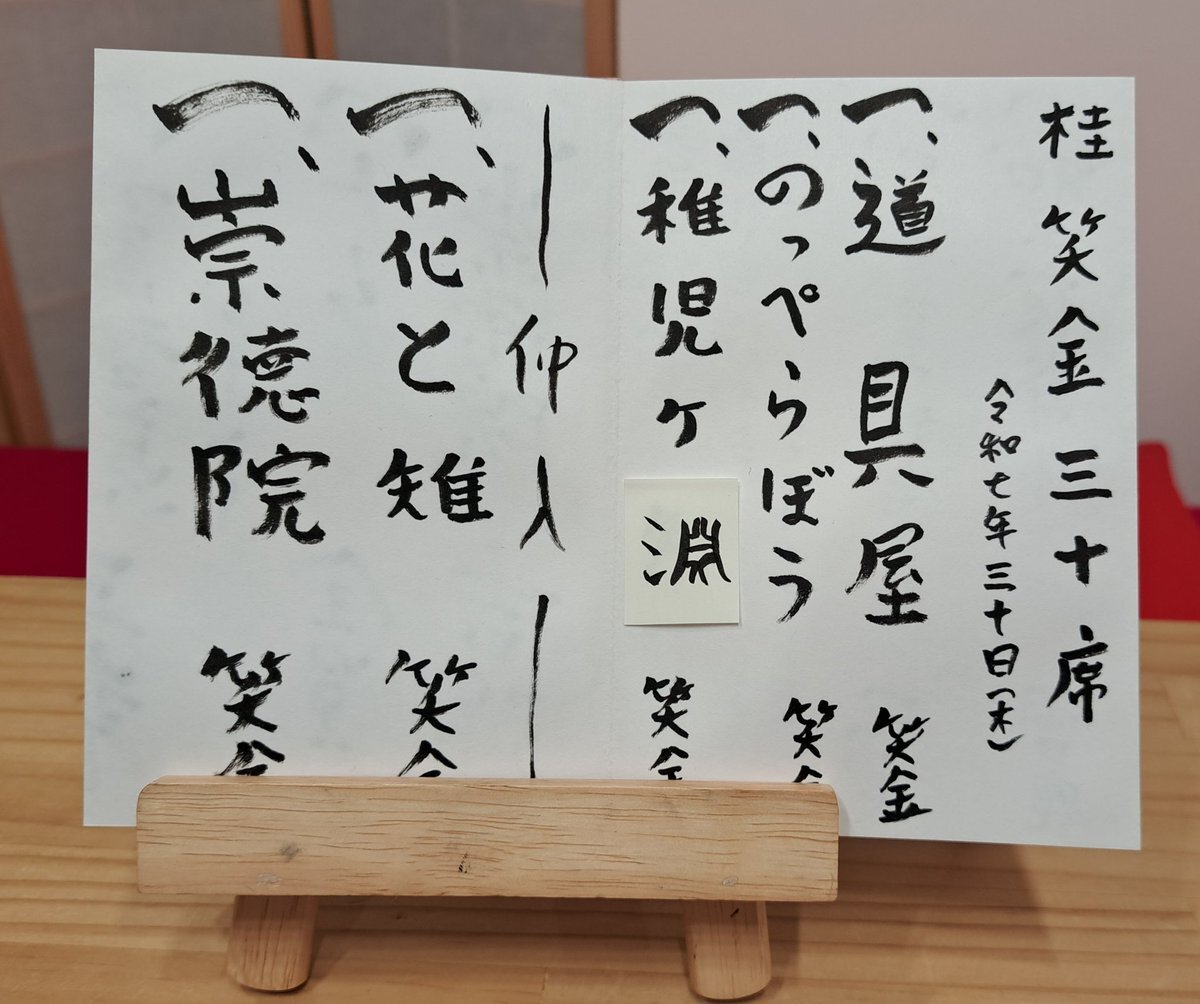 桂 笑金 三十席
令和七年三十日(木)
一、道具屋 笑金
一、のっぺらぼう 笑金
一、稚児ヶ淵 笑金
仲入
一、花と雉 笑金
一、崇徳院 笑金